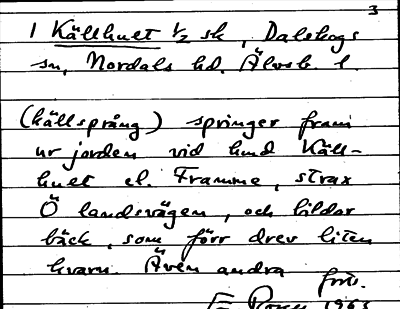 3
1 Källhuet 1/2 sk, Dalskogs
sn, Nordals hd. Älvsb. l.
(källsprång) springer fram
ur jorden vid hmd Käll-
huet el. Framme, strax
Ö landsvägen, och bildar
bäck, som förr drev liten
kvarn. Även andra forts.
1963